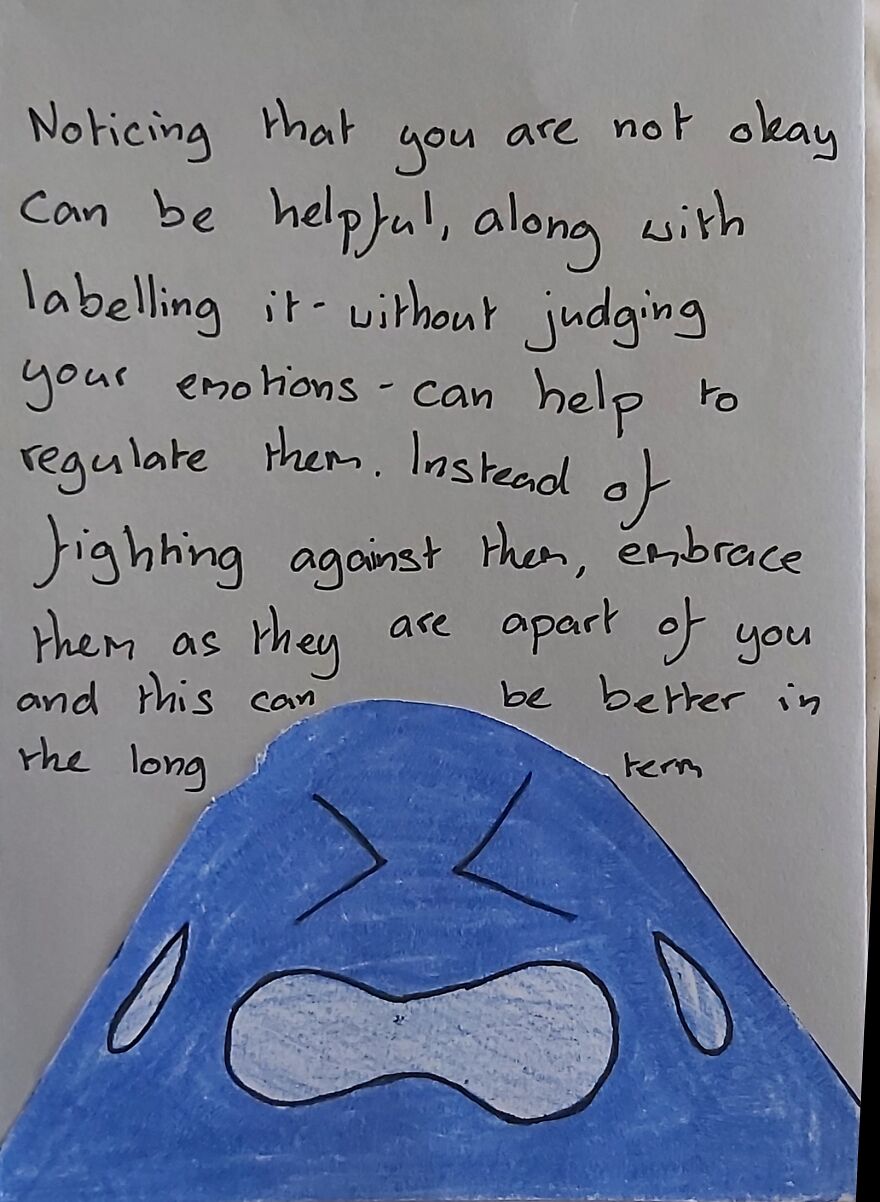 Noticing that you are not okay
can be helpful, along with
labelling it - without judging
your emotions - can help to
regulate them. Instead of
fighting against them, embrace
them as they are apart of you
and this can be better in
the long term